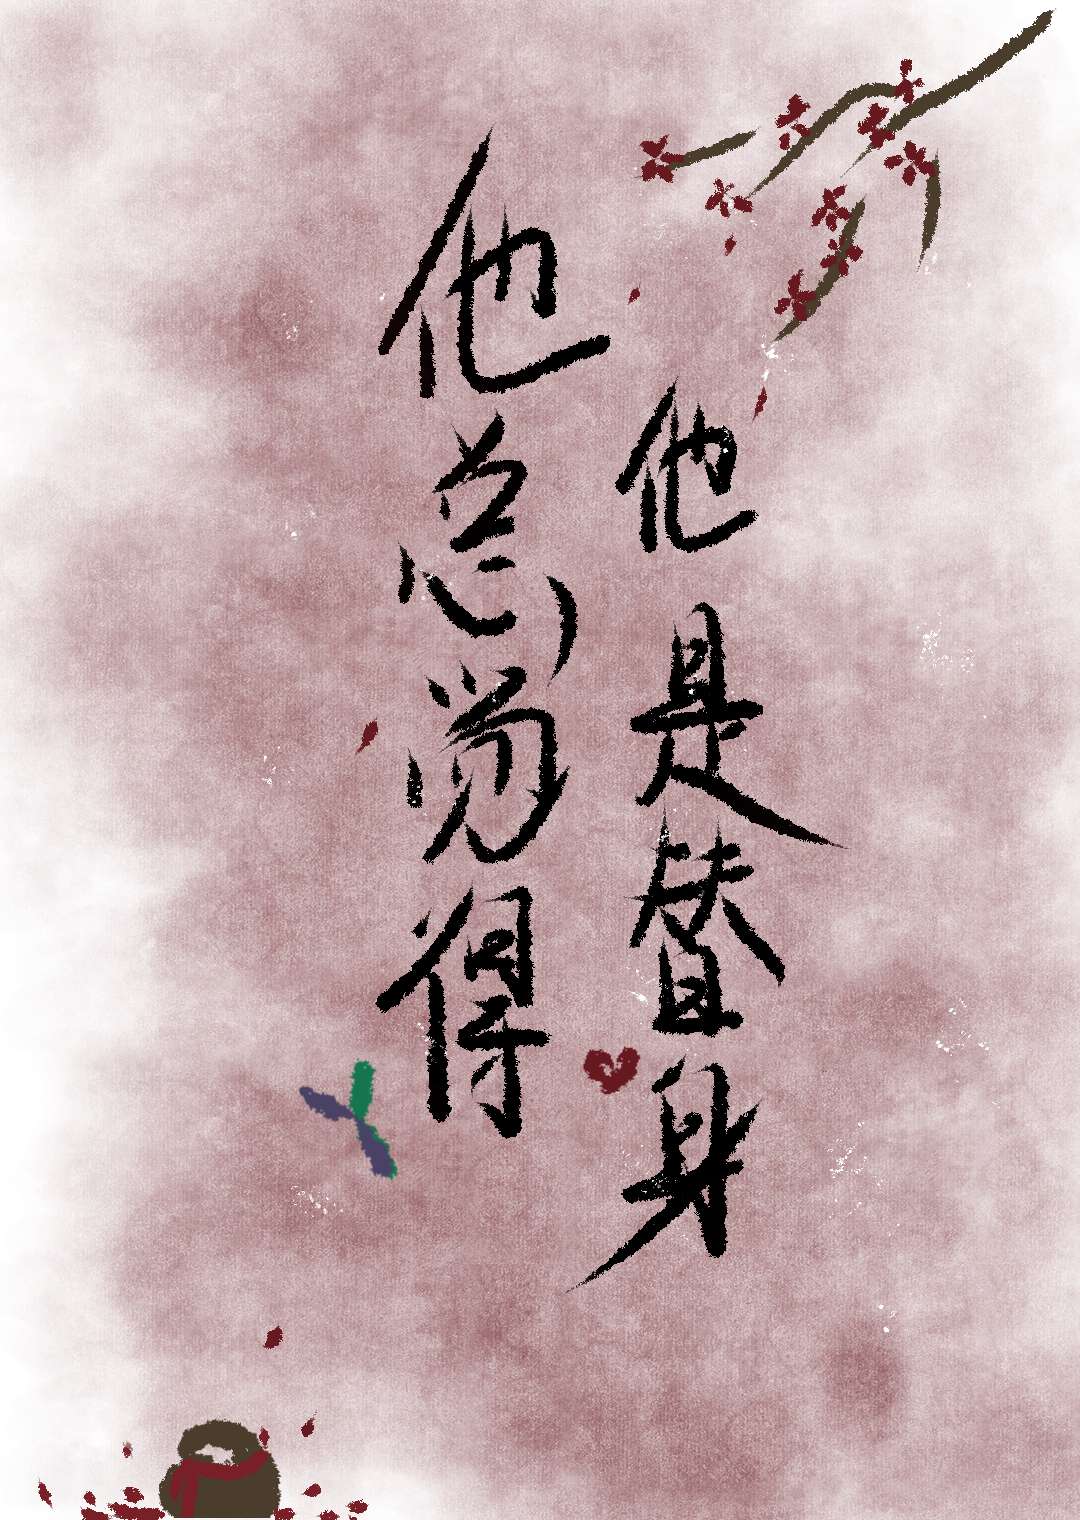 他总觉得
他是替身